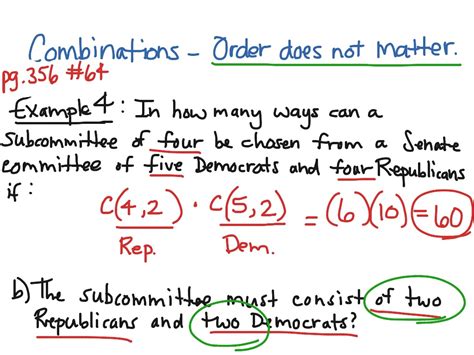 Combinations - Order does not matter.
pg. 356 #64
Example 4: In how many ways can a
subcommittee of four be chosen from a Senate
committee of five Democrats and four Republicans
if:
C(4,2) · C(5,2) = (6)(10) = 60
Rep. Dem.
b) The subcommittee must consist of two
Republicans and two Democrats?